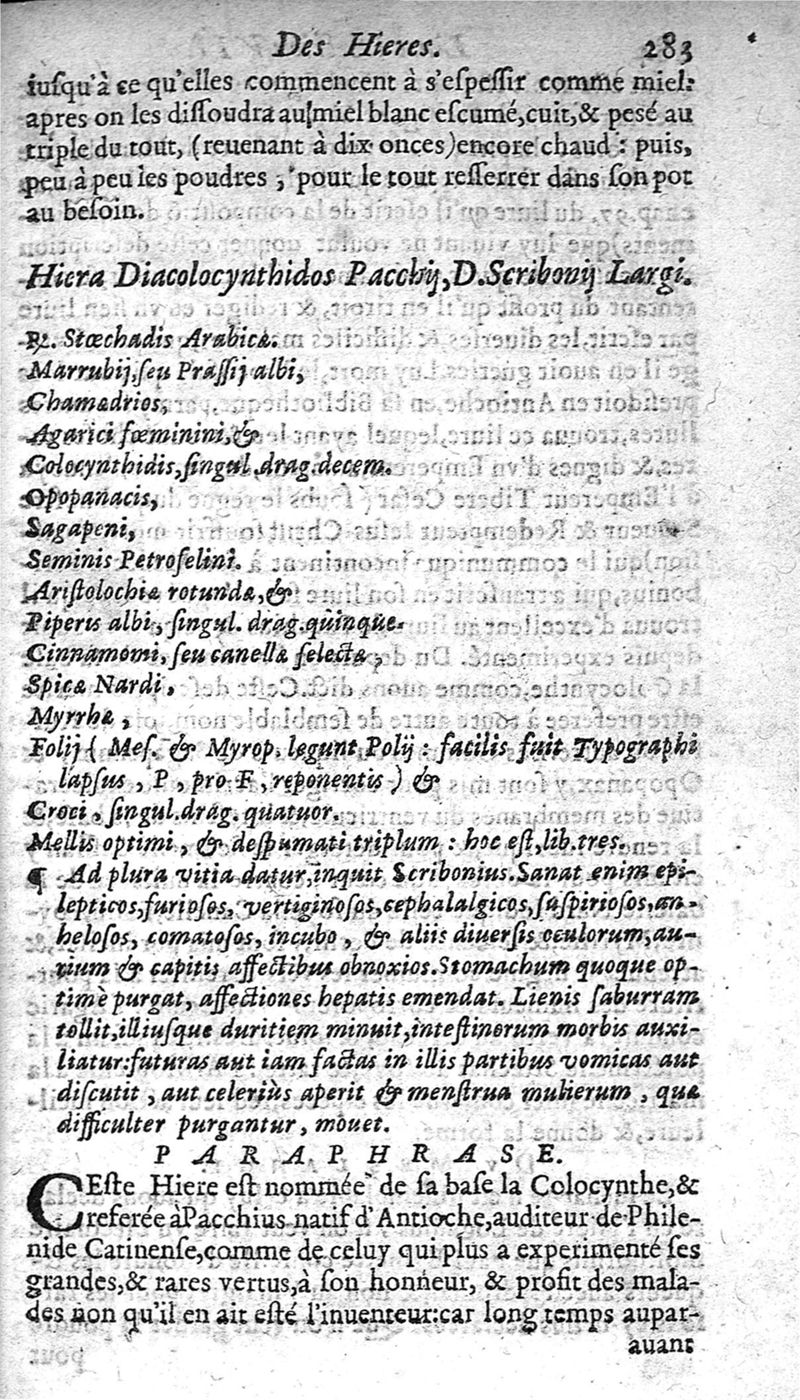 Des Hieres. 283
iusqu'à ce qu'elles commencent à s'espessir comme miel:
apres on les dissoudra au miel blanc escumé, cuit, & pesé au
triple du tout, (reuenant à dix onces) encore chaud : puis,
peu à peu les poudres ; pour le tout resserrer dans son pot
au besoin.
Hiera Diacolocynthidos Pacchij, D. Scribonij Largi.
℞. Stœchadis Arabicæ.
Marrubij, seu Prassij albi,
Chamædrios,
Agarici fœminini, &
Colocynthidis, singul. drag. decem.
Opopanacis,
Sagapeni,
Seminis Petroselini.
Aristolochiæ rotundæ, &
Piperis albi, singul. drag. quinque.
Cinnamomi, seu canellæ selectæ,
Spicæ Nardi,
Myrrhæ,
Folij ( Mes. & Myrop. legunt Polij : facilis fuit Typographi
lapsus, P, pro F, reponentis ) &
Croci, singul. drag. quatuor.
Mellis optimi, & despumati triplum : hoc est, lib. tres.
¶ Ad plura vitia datur, inquit Scribonius. Sanat enim epi-
lepticos, furiosos, vertiginosos, cephalalgicos, suspiriosos, an-
helosos, comatosos, incubo, & aliis diuersis oculorum, au-
rium & capitis affectibus obnoxios. Stomachum quoque op-
timè purgat, affectiones hepatis emendat. Lienis saburram
tollit, illiusque duritiem minuit, intestinorum morbis auxi-
liatur: futuras aut iam factas in illis partibus vomicas aut
discutit, aut celeriùs aperit & menstrua mulierum, quæ
difficulter purgantur, mouet.
PARAPHRASE.
CEste Hiere est nommée de sa base la Colocynthe, &
referée à Pacchius natif d'Antioche, auditeur de Phile-
nide Catinense, comme de celuy qui plus a experimenté ses
grandes, & rares vertus, à son honneur, & profit des mala-
des non qu'il en ait esté l'inuenteur: car long temps aupar-
auant